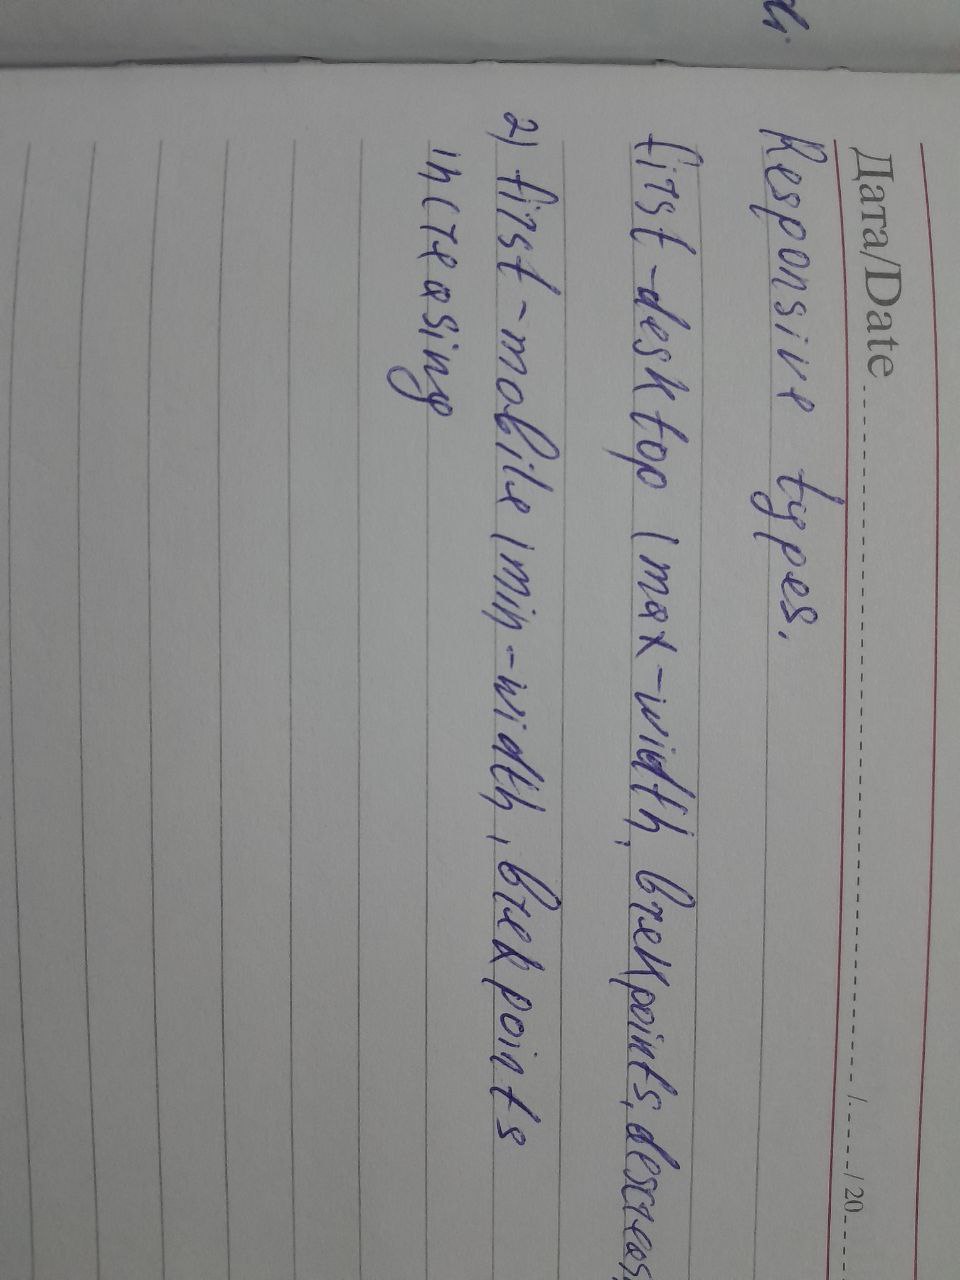 Дата/Date / /20
Responsive types.
first-desktop (max-width, brekpoints, descreas
2) first-mobile (min-width, brekpoints
increasing